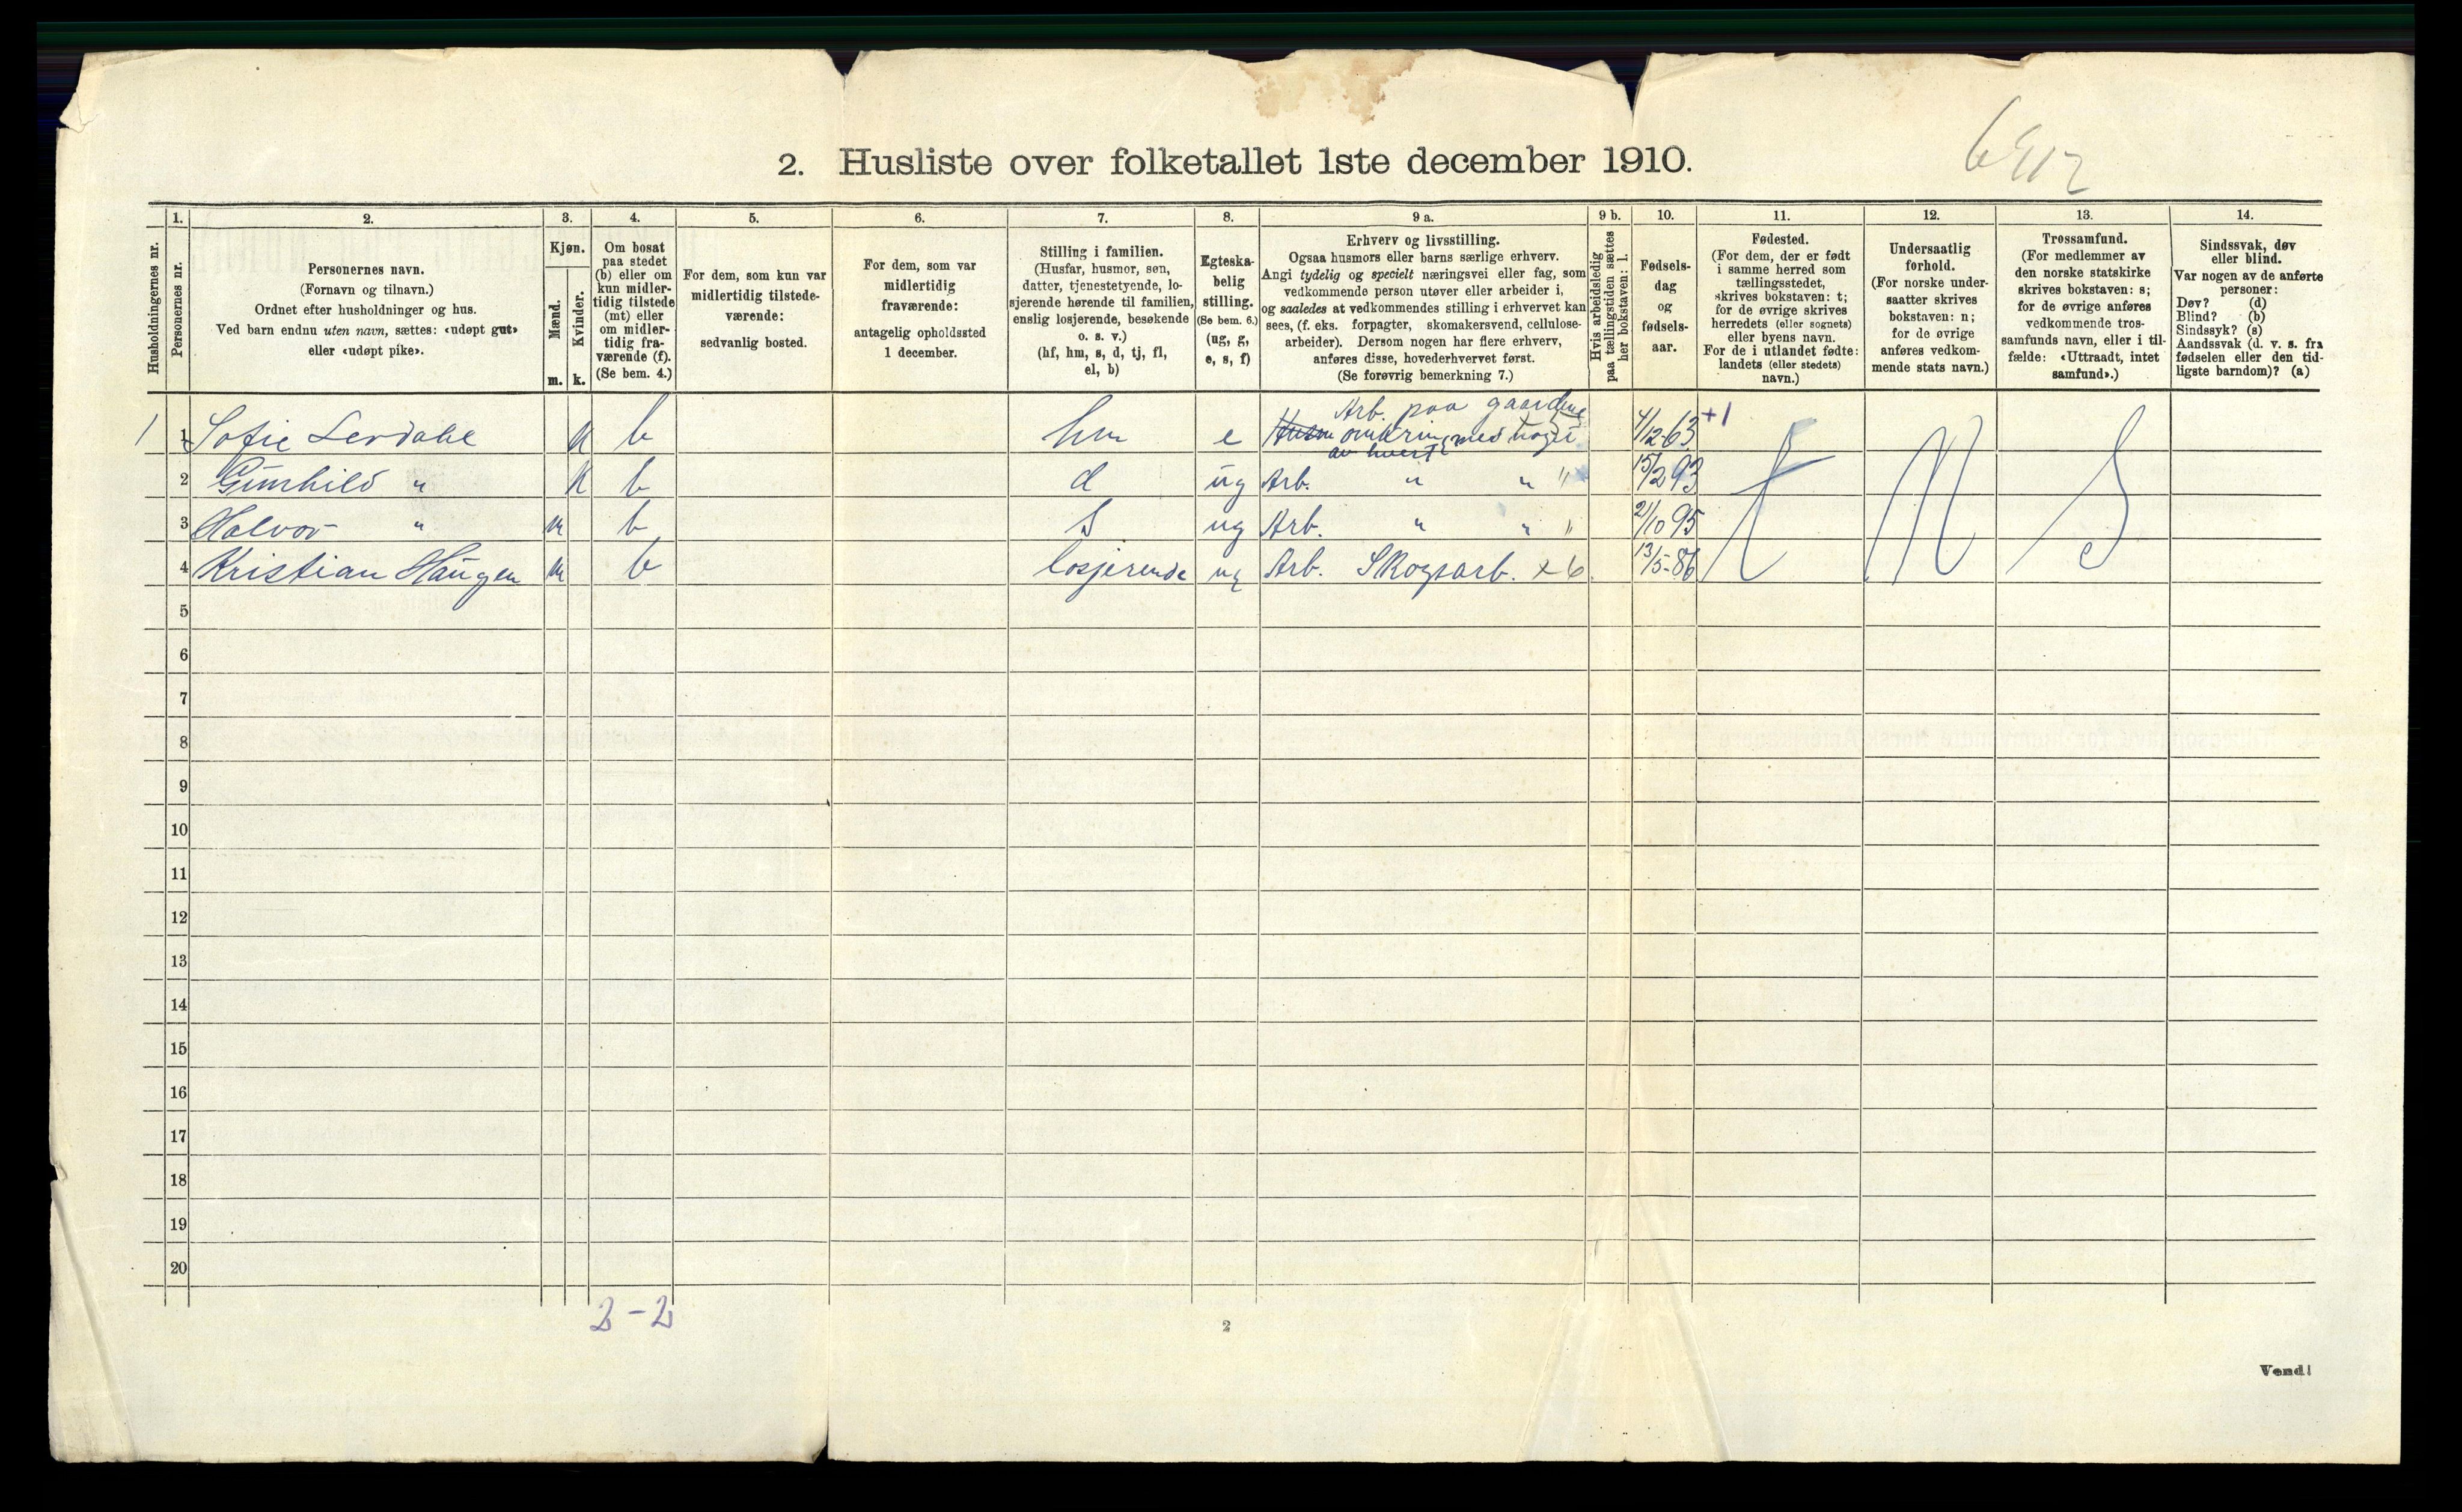 6912
2. Husliste over folketallet 1ste december 1910.
Husholdningernes nr.
1.
Personernes nr.
2.
Personernes navn.
(Fornavn og tilnavn.)
Ordnet efter husholdninger og hus.
Ved barn endnu uten navn, sættes: «udøpt gut»
eller «udøpt pike».
3.
Kjøn.
Mænd.
m.
Kvinder.
k.
4.
Om bosat
paa stedet
(b) eller om
kun midler-
tidig tilstede
(mt) eller
om midler-
tidig fra-
værende (f).
(Se bem. 4.)
5.
For dem, som kun var
midlertidig tilstede-
værende:
sedvanlig bosted.
6.
For dem, som var
midlertidig
fraværende:
antagelig opholdssted
1 december.
7.
Stilling i familien.
(Husfar, husmor, søn,
datter, tjenestetyende, lo-
sjerende hørende til familien,
enslig losjerende, besøkende
o. s. v.)
(hf, hm, s, d, tj, fl,
el, b)
8.
Egteska-
belig
stilling.
(Se bem. 6.)
(ug, g,
e, s, f)
9 a.
Erhverv og livsstilling.
Ogsaa husmors eller barns særlige erhverv.
Angi tydelig og specielt næringsvei eller fag, som
vedkommende person utøver eller arbeider i,
og saaledes at vedkommendes stilling i erhvervet kan
sees, (f. eks. forpagter, skomakersvend, cellulose-
arbeider). Dersom nogen har flere erhverv,
anføres disse, hovederhvervet først.
(Se forøvrig bemerkning 7.)
9 b.
Hvis arbeidsledig
paa tællingstiden sættes
her bokstaven: l.
10.
Fødsels-
dag
og
fødsels-
aar.
11.
Fødested.
(For dem, der er født
i samme herred som
tællingsstedet,
skrives bokstaven: t;
for de øvrige skrives
herredets (eller sognets)
eller byens navn.
For de i utlandet fødte:
landets (eller stedets)
navn.)
12.
Undersaatlig
forhold.
(For norske under-
saatter skrives
bokstaven: n;
for de øvrige
anføres vedkom-
mende stats navn.)
13.
Trossamfund.
(For medlemmer av
den norske statskirke
skrives bokstaven: s;
for de øvrige anføres
vedkommende tros-
samfunds navn, eller i til-
fælde: «Uttraadt, intet
samfund».)
14.
Sindssvak, døv
eller blind.
Var nogen av de anførte
personer:
Døv? (d)
Blind? (b)
Sindssyk? (s)
Aandssvak (d. v. s. fra
fødselen eller den tid-
ligste barndom)? (a)
Arb. paa gaardene
1 1 Sofie Lerdahl k b hm e omkring med noget 4/12-63 +1 t n s
av hvert
2 Gunhild " k b d ug Arb. " " " 15/2 93
3 Halvor " m b s ug Arb. " " " 21/10 95
4 Kristian Haugen m b losjerende ug Arb. Skogsarb. x 6 13/5-86
5
6
7
8
9
10
11
12
13
14
15
16
17
18
19
20
2-2
2
Vend!